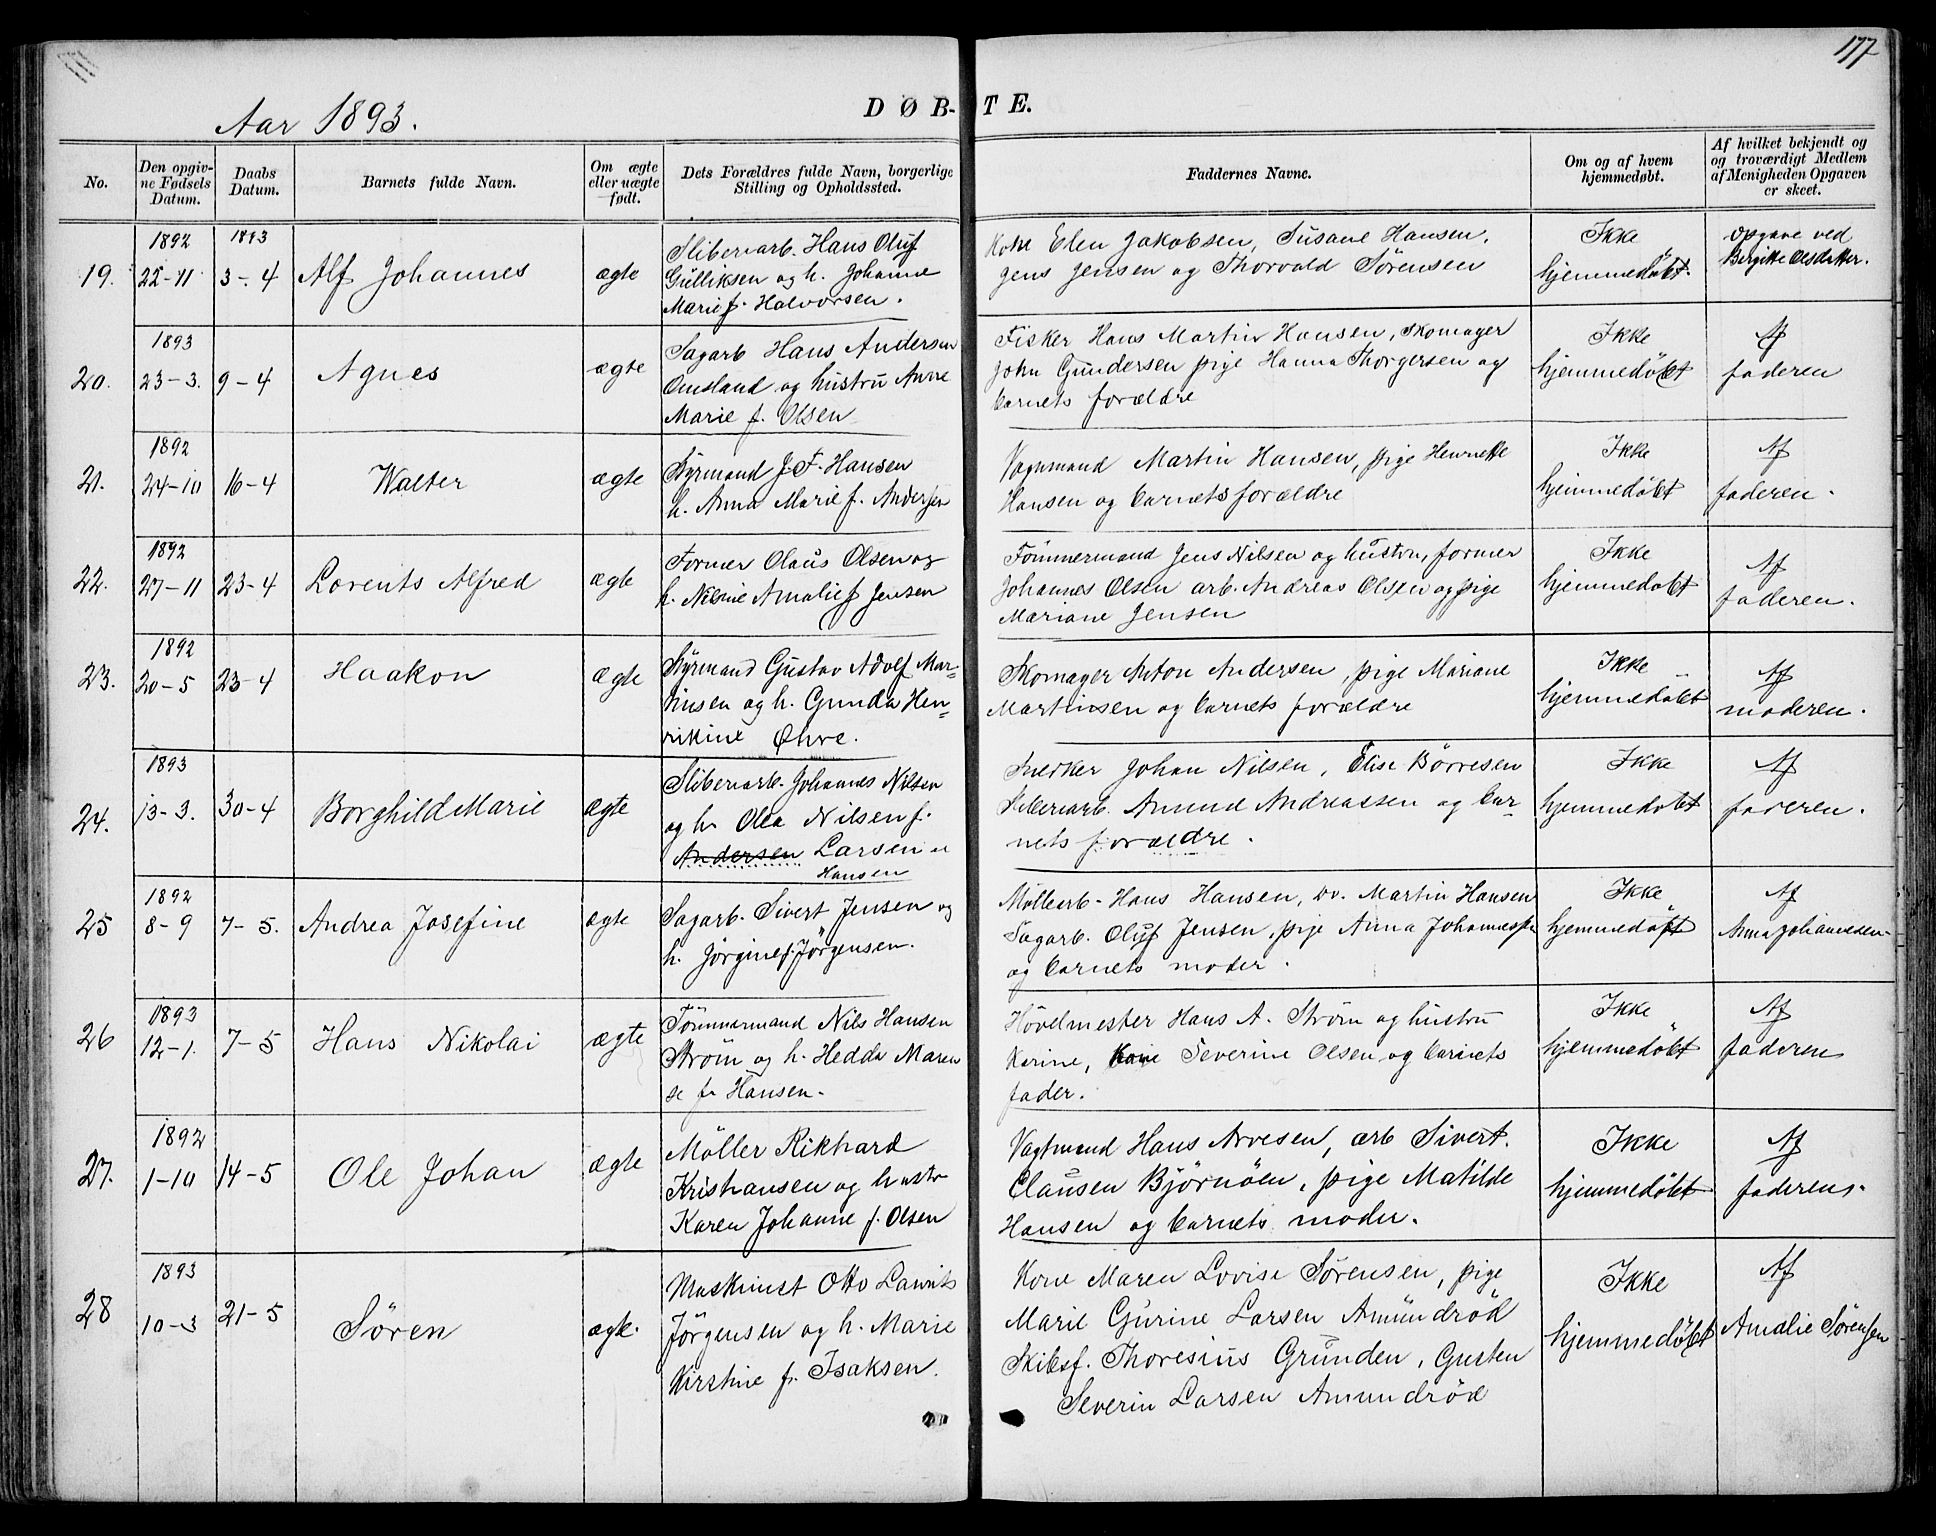 177
Aar 1893.
DØB-TE.
No.
Den opgiv-
ne Fødsels
Datum.
Daabs
Datum.
Barnets fulde Navn.
Om ægte
eller uægte
født.
Dets Forældres fulde Navn, borgerlige
Stilling og Opholdssted.
Faddernes Navne.
Om og af hvem
hjemmedøbt.
Af hvilket bekjendt og
og troværdigt Medlem
af Menigheden Opgaven
er skeet.
19.
1892
22-11
1893
3-4
Alf Johannes
ægte
Sliberiarb. Hans Oluf
Gulliksen og h. Johanne
Marie f. Halvorsen.
Kone Elen Jakobsen, Susane Hansen,
Jens Jensen og Thorvald Sørensen
Ikke
hjemmedøbt.
Opgave ved
Bergitte Olsdatter.
20.
1893
23-3.
9-4
Agnes
ægte
Sagarb Hans Andersen
Omsland og hustru Anne
Marie f. Olsen
Fisker Hans Martin Hansen, Skomager
John Gundersen pige Hanna Thorgersen og
barnets forældre
Ikke
hjemmedøbt
Af
faderen
21.
1892
24-10
16-4
Walter
ægte
Styrmand J. F. Hansen
h. Anna Marie f. Andersen
Vagtmand Martin Hansen, pige Henriette
Hansen og barnets forældre
Ikke
hjemmedøbt
Af
faderen.
22.
1892
27-11
23-4
Lorents Alfred
ægte
Former Olaus Olsen og
h. Nilsine Amalie f Jensen
Tømmermand Jens Nilsen og hustru, former
Johannes Olsen arb. Andreas Olsen og pige
Mariane Jensen
Ikke
hjemmedøbt
Af
faderen.
23.
1892
20-5
23-4
Haakon
ægte
Styrmand Gustav Adolf Mar=
tinsen og h. Gunda Hen=
rikine Øhre.
Skomager Anton Andersen, pige Mariane
Martinsen og barnets forældre
Ikke
hjemmedøbt
Af
moderen.
24.
1893
13-3.
30-4
Borghild Marie
ægte
Sliberiarb. Johannes Nilsen
og h. Olea Nilsen f.
Andersen Larsen
Hansen
Snedker Johan Nilsen, Elise Børresen
Sliberiarb. Amund Andreassen og bar=
nets forældre.
Ikke
hjemmedøbt
Af
faderen.
25
1892
8-9
7-5.
Andrea Josefine
ægte
Sagarb. Sivert Jensen og
h. Jørgine f. Jørgensen.
Møllearb- Hans Hansen, Do. Martin Hansen
Sagarb. Oluf Jensen, pige Anna Johannessen
og barnets moder.
Ikke
hjemmedøbt
Af
Anna Johannesen-
26
1893
12-1.
7-5
Hans Nikolai
ægte
Tømmermand Nils Hansen
Strøm og h. Hedda Maren
se f. Hansen.
Høvelmester Hans A. Strøm og hustru
Karine, Kone Severine Olsen og barnets
fader.
Ikke
hjemmedøbt
Af
faderen
27.
1892
1-10
14-5
Ole Johan
ægte
Møller Rikhard
Kristiansen og hustr
Karen Johanne f. Olsen
Vagtmand Hans Arvesen, arb Sivert.
Clausen Bjørnøen, pige Matilde
Hansen og barnets moder.
Ikke
hjemmedøbt
Af
faderens.
28
1893
10-3
21-5
Søren
ægte.
Maskinist Otto Laurits
Jørgensen og h. Marie
Kirstine f. Isaksen.
Kone Maren Lovise Sørensen, pige
Marie Gurine Larsen Amundrød
Skibsf. Thoresius Grunden, Gusten
Severin Larsen Amundrød
Ikke
hjemmedøbt
Af
Amalie Sørensen